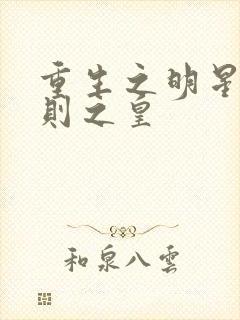 重生之明星
則之皇
和泉八雲